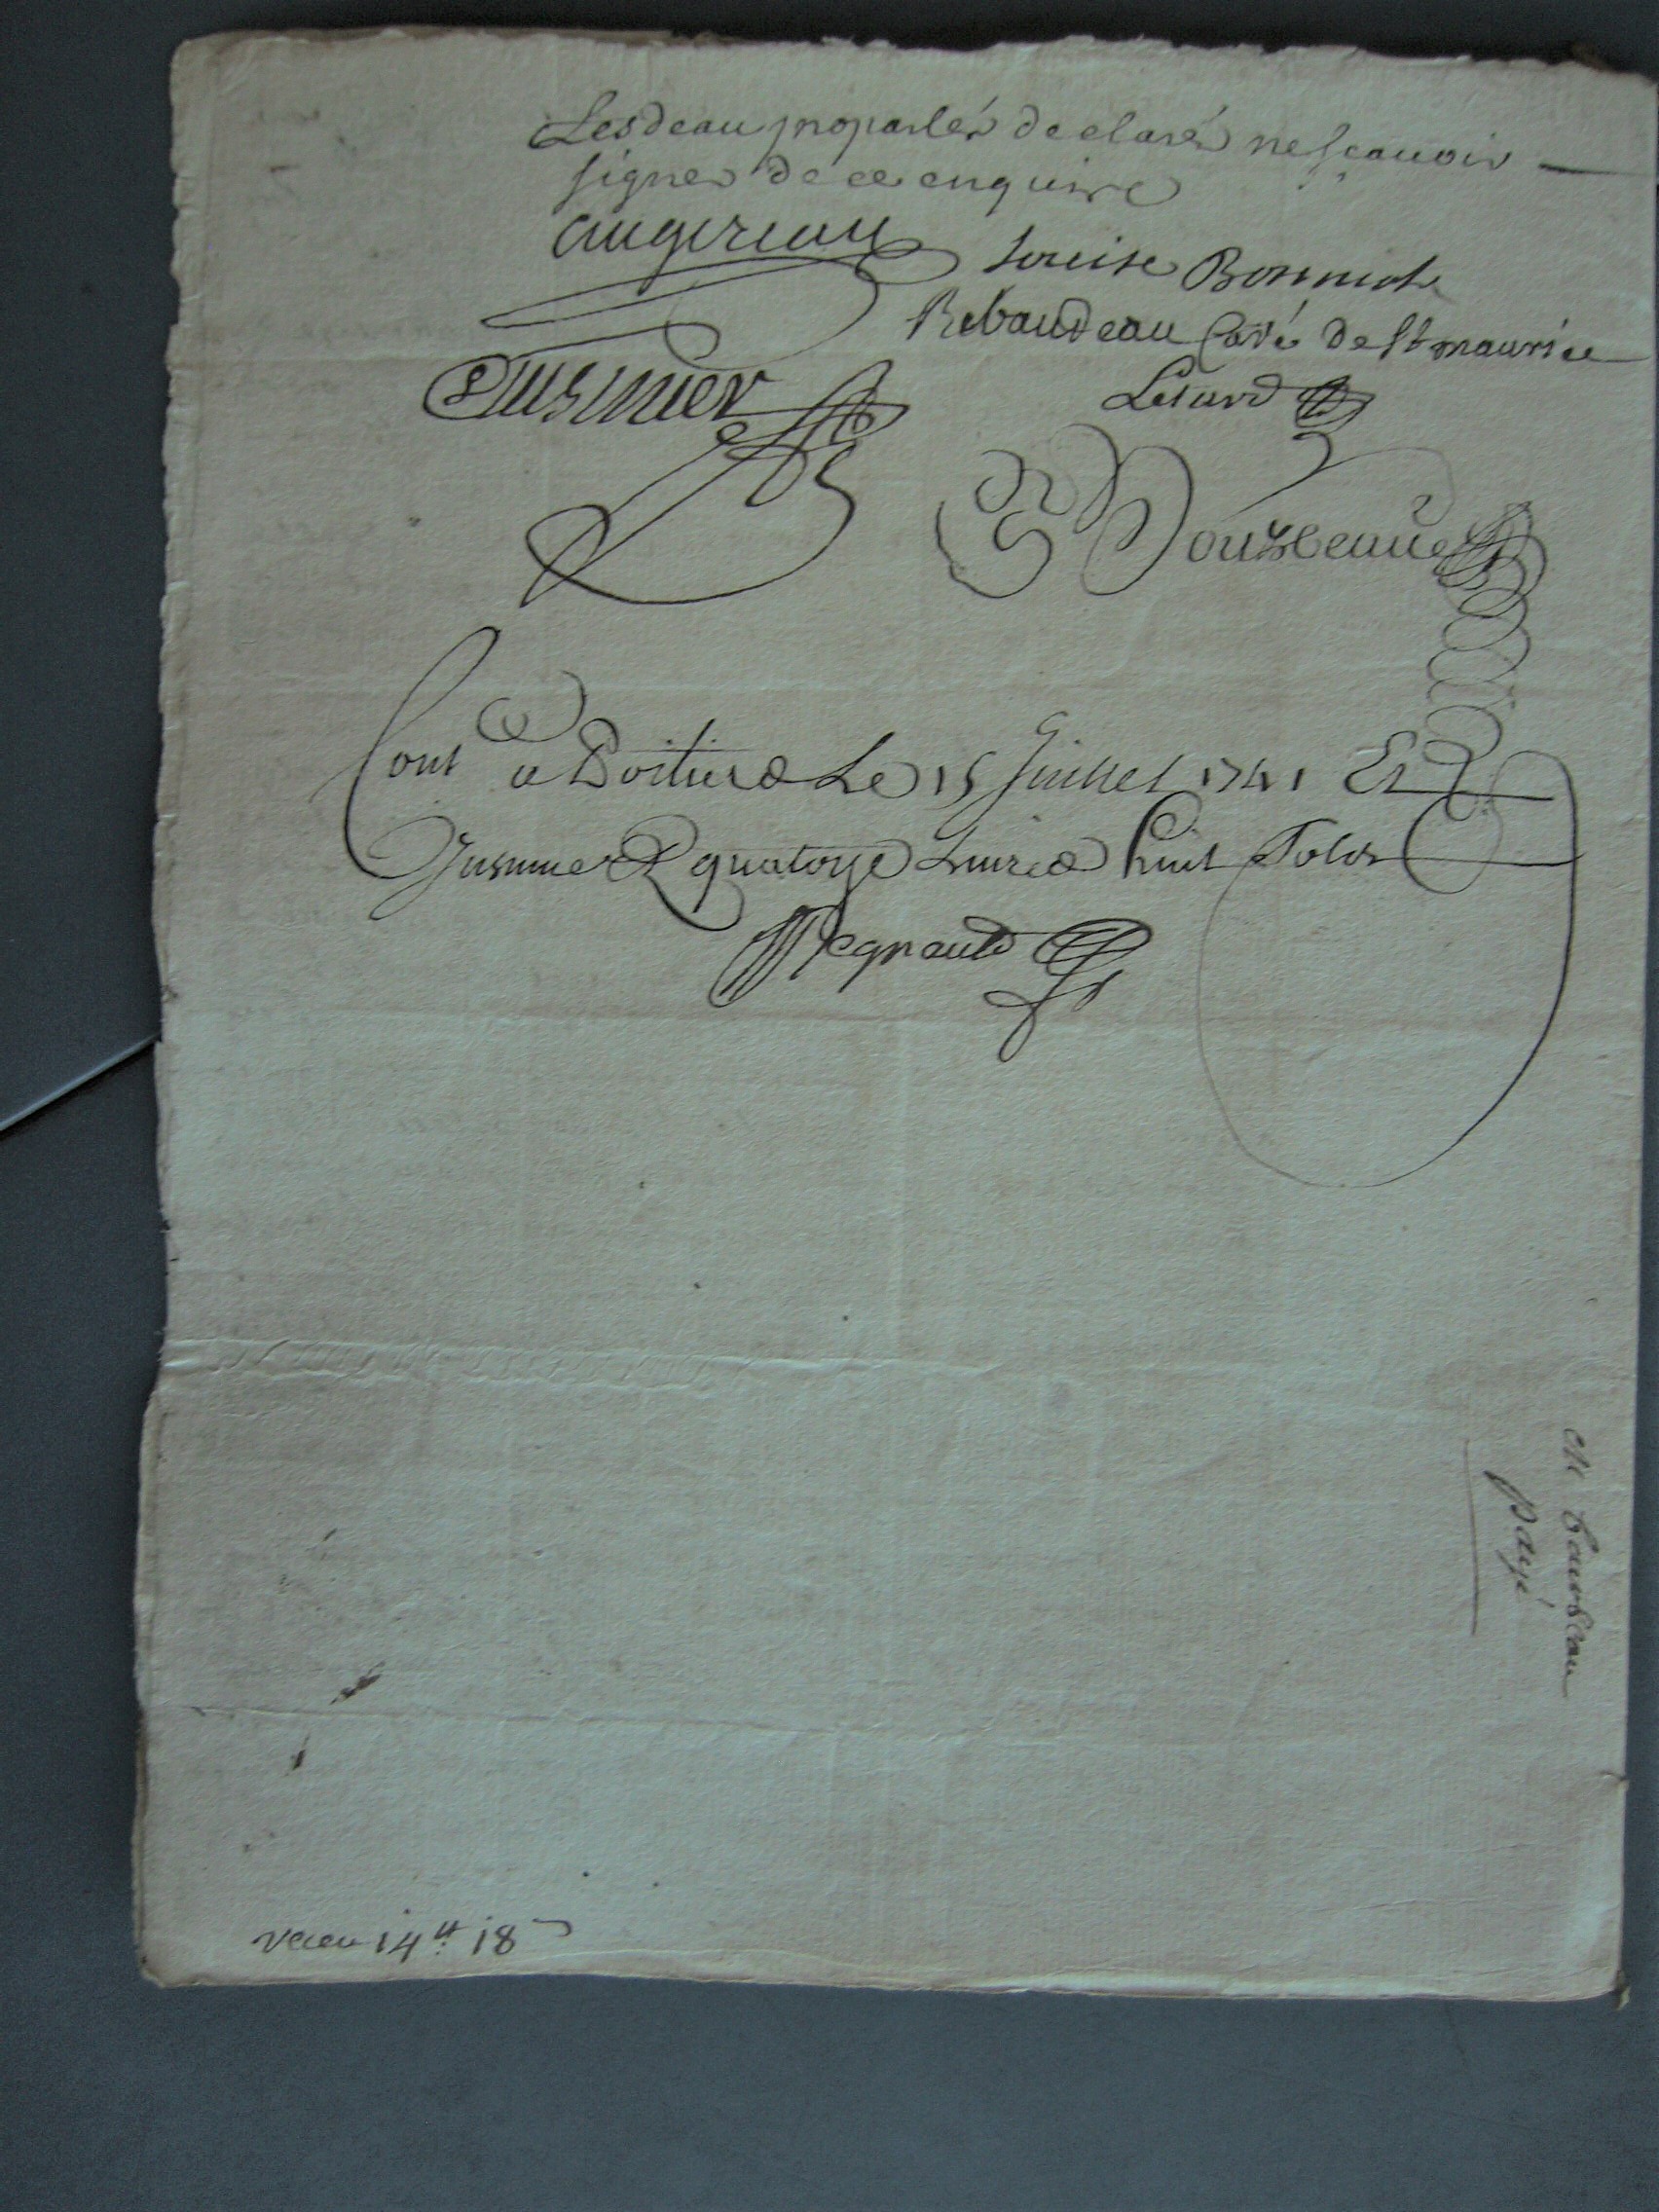 Lesdeau proparlés declaré ne sçauoir
signer de ce enquire
augereau
Louise Bonniot
Rebaudeau Curé de St maurice
Cuisinier
Lesurd
Bourbeau
Cont a Poitiers Le 15 Juillet 1741 Et
Insinue R quatorze Liures huit Sols
Regnauld
Mr bourbeau
payé
receu 14tt 18s